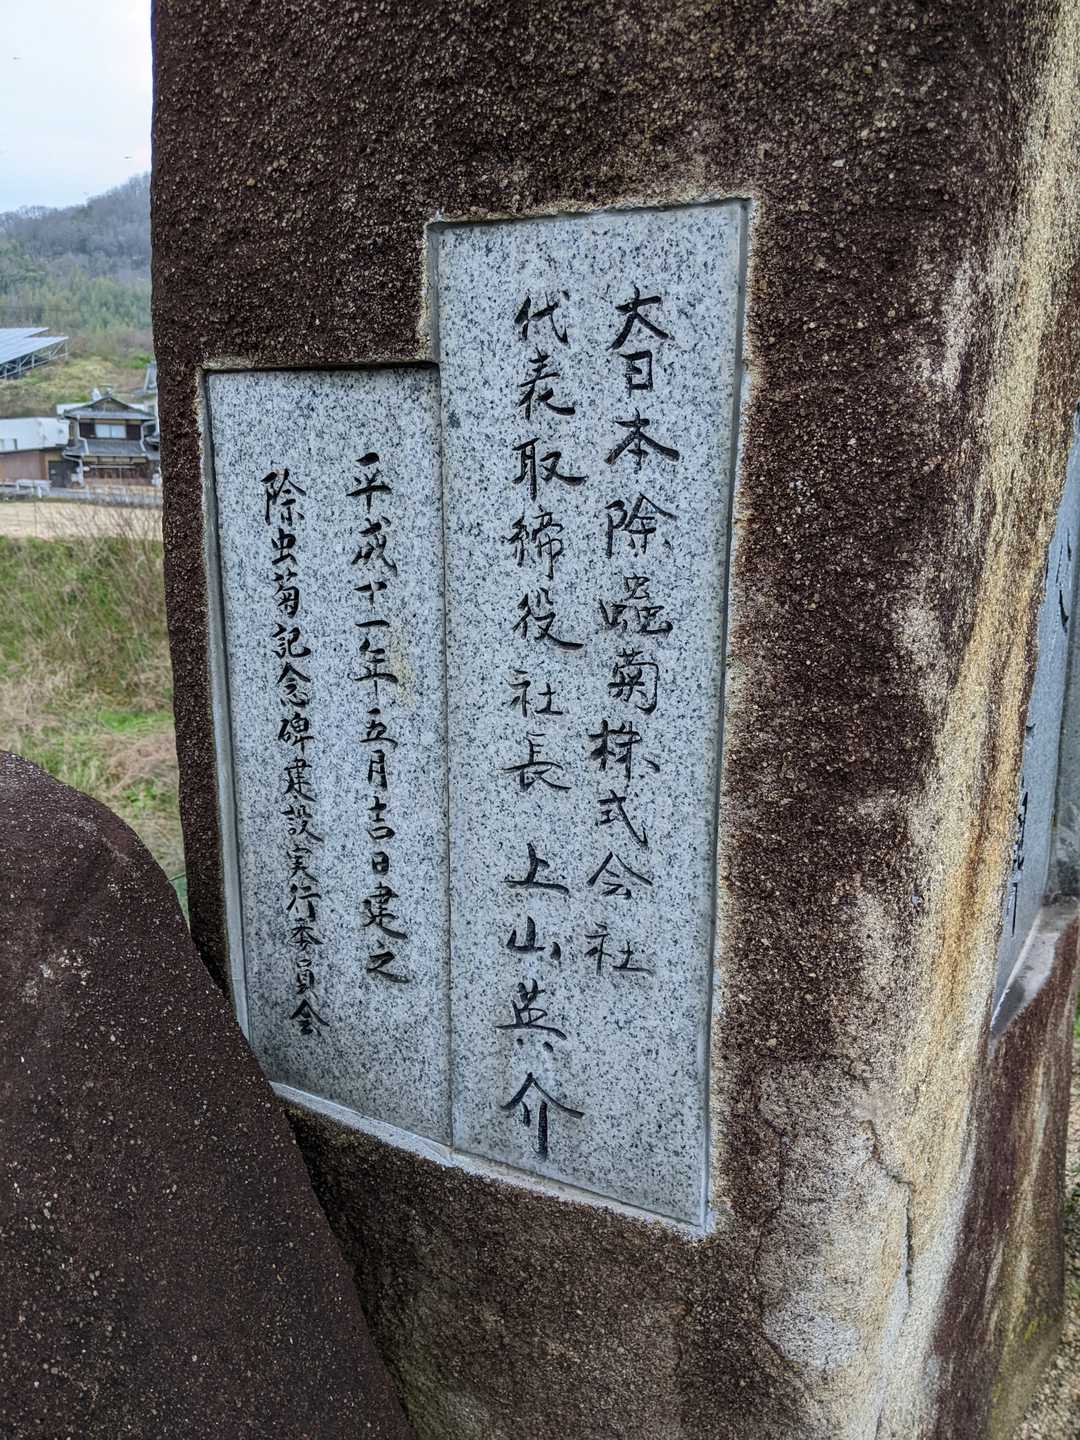 大日本除蟲菊株式会社
代表取締役社長 上山英介
平成十一年五月吉日建之
除虫菊記念碑建設実行委員会